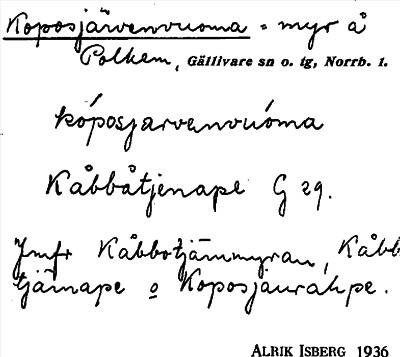 Koposjärvenvuoma = myr å
Polkem, Gällivare sn o. tg, Norrb. l.
kóposjarvenvuóma
Kåbbåtjenape G 29.
Jmfr Kåbbotjämmyran, Kåbb
tjärnape o Koposjaurahpe.
ALRIK ISBERG 1936